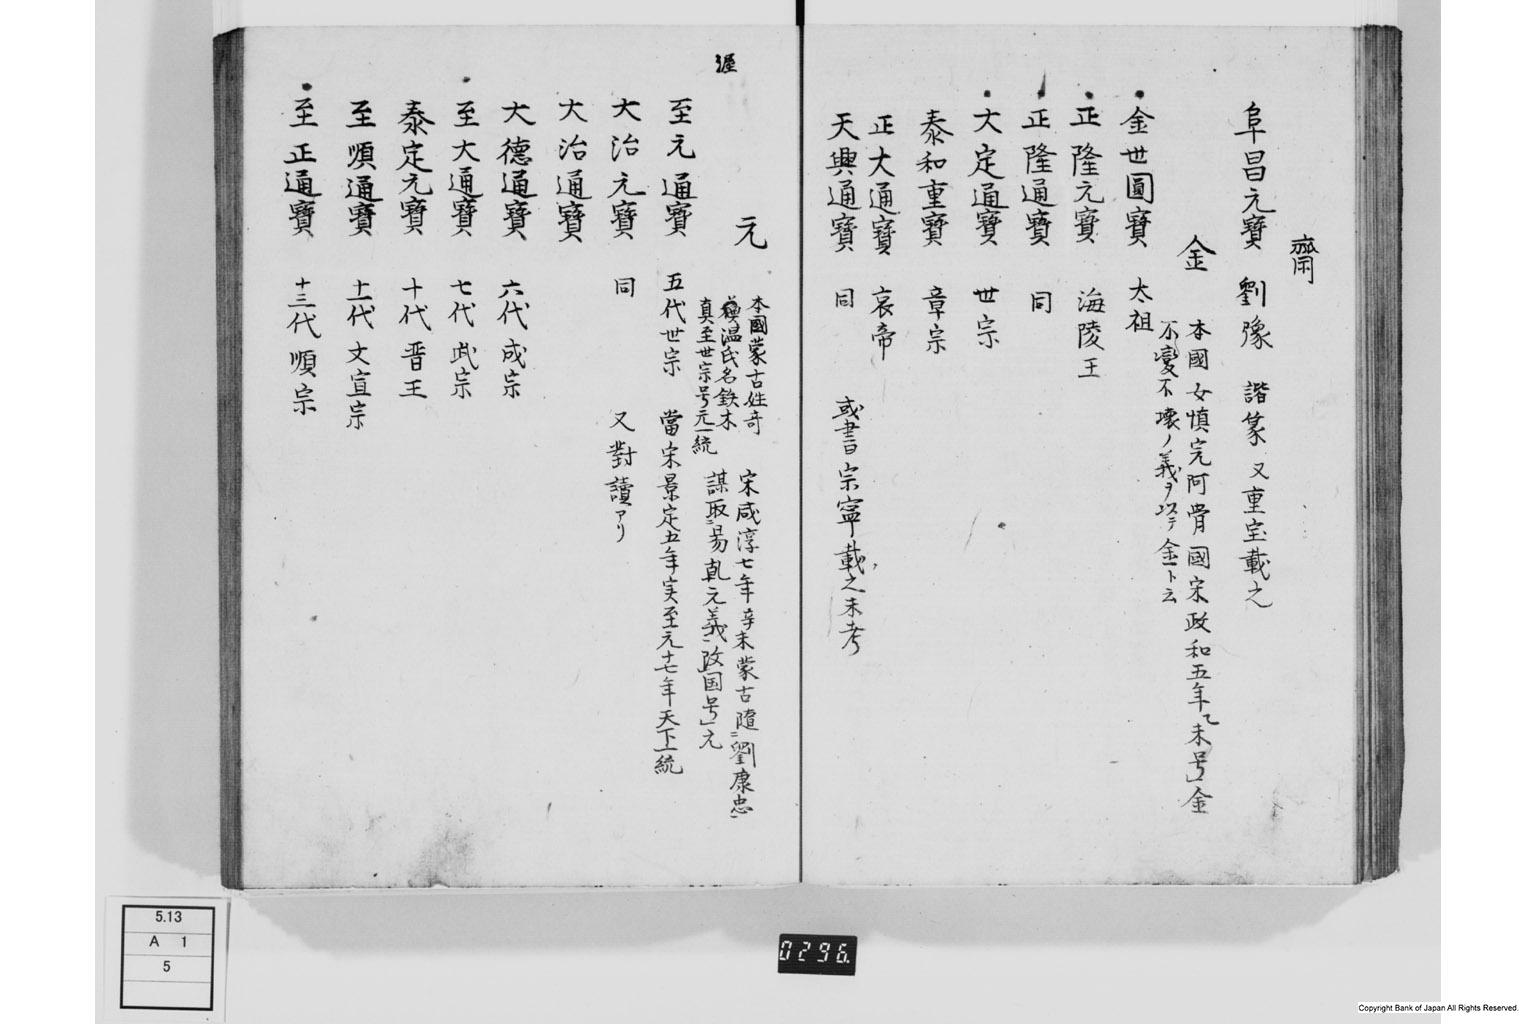 齋
阜昌元寶 劉豫 諧篆 又重宝載之
金
本國女慎完阿骨國宋政和五年乙未号金
不變不壊ノ義ヲ以テ金ト云
金世圓寶 太祖
正隆元寶 海陵王
正隆通寶 同
大定通寶 世宗
泰和重寶 章宗
正大通寶 哀帝
天興通寶 同 或書宗寧載之未考
元
本國蒙古姓奇
渥温氏名鉄木
真至世宗号元一統
宋咸淳七年辛未蒙古 劉康忠
謀取易乾元義改国号元
渥
至元通寶 五代世宗 當宋景定五年実至元十七年天下一統
大治元寶 同 又對讀アリ
大治通寶
大德通寶 六代成宗
至大通寶 七代武宗
泰定元寶 十代晋王
至順通寶 十一代文宣宗
至正通寶 十三代順宗
5.13
A 1
5
0296.
Copyright Bank of Japan All Rights Reserved.